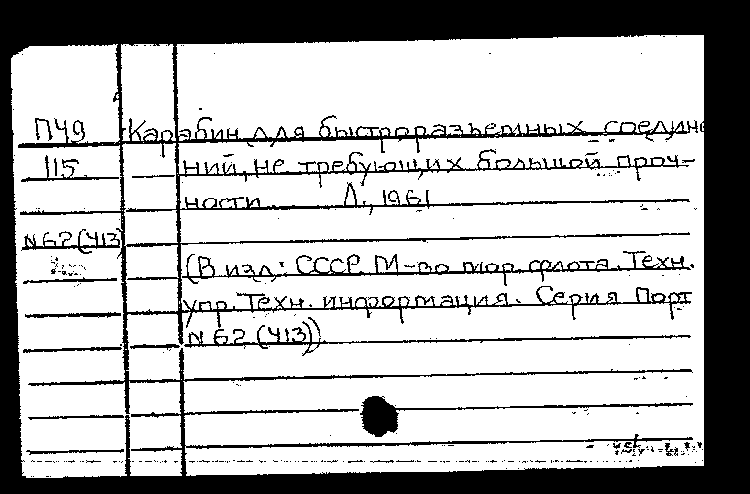 П49 Карабин для быстроразъемных соедине
115 ний, не требующих большой проч-
ности Л., 1961
N62(413)
(В изд: СССР. М-во мор. флота. Техн.
упр. Техн. информация. Серия Порт
N 62 (413))